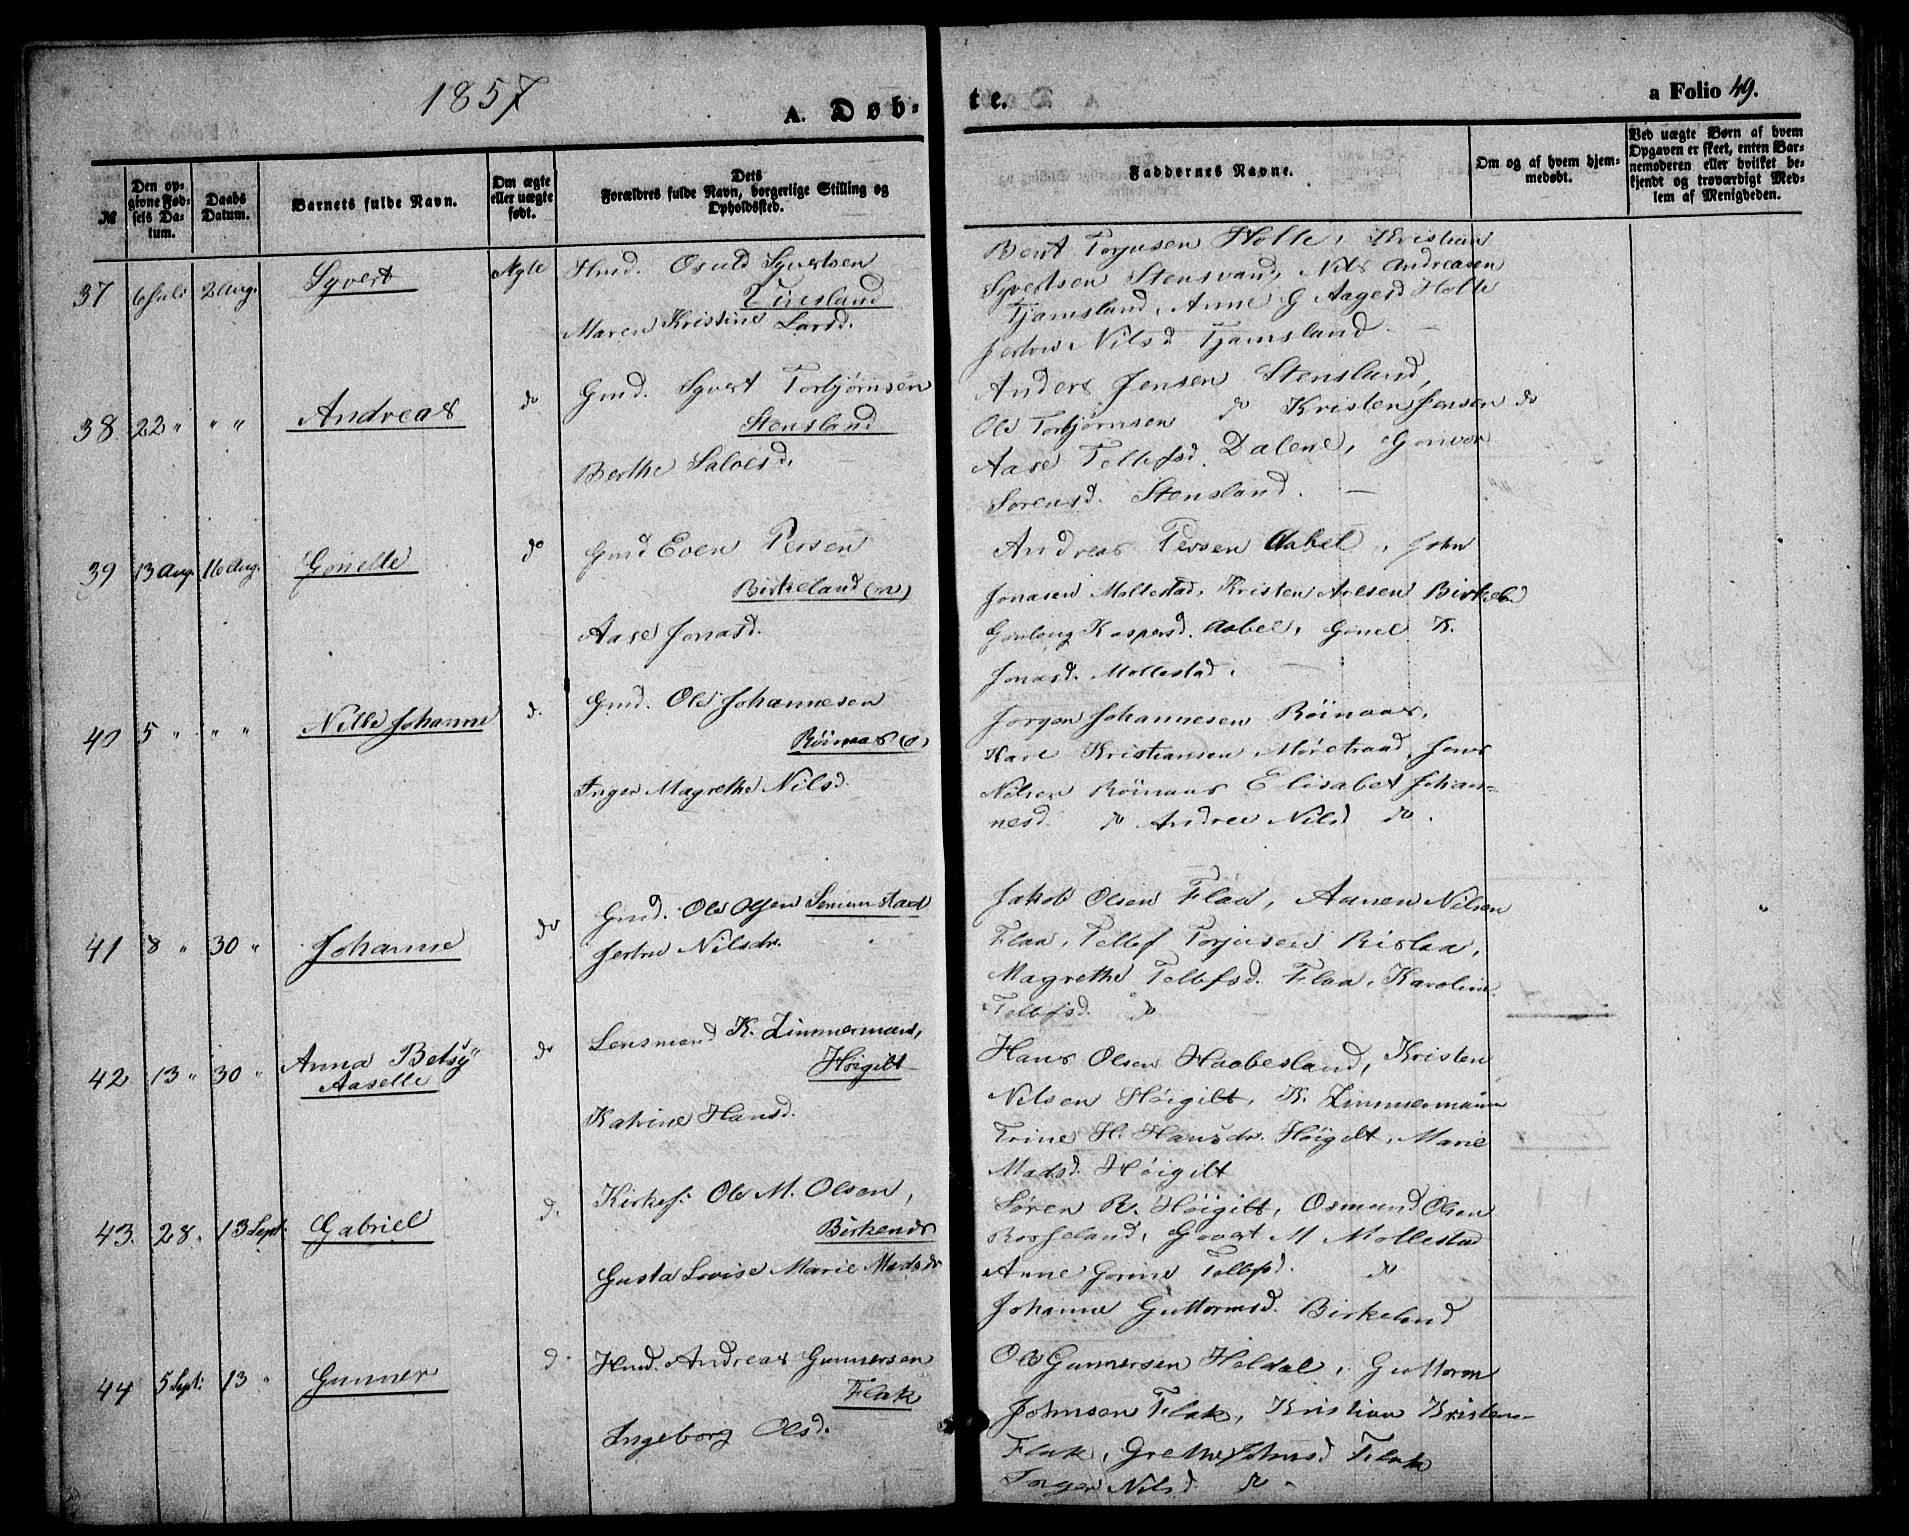 1857
A. Døb-
te.
a Folio 49.
№
Den op-
givne Fød-
sels Da-
tum.
Daabs
Datum.
Barnets fulde Navn.
Om ægte
eller uægte
født.
Dets
Forældres fulde Navn, borgerlige Stilling og
Opholdssted.
Faddernes Navne.
Om og af hvem hjem-
medøbt.
Ved uægte Børn af hvem
Opgaven er skeet, enten Bar-
nemoderen eller hvilket be-
kjendt og troværdigt Med-
lem af Menigheden.
37 6 Juli 2 Aug. Syvert Ægte Hmd. Osuld Syvertsen
Maren Kristine Larsd.
Bent Torjusen Holte, Kristian
Syvertsen Stensvand, Nils Andreasen
Tjamsland, Anne G Aagesd Holte
Nilsd Tjamsland
38 22 " " " Andreas do Gmd. Syvert Torbjørnsen
Stensland
Berthe Salvesd.
Anders Jensen Stensland,
Ole Torbjørnsen do Kristen Jensen do
Aase Tellefsd. Dalene, Gunvor
Sørensd. Stensland.
39 13 Aug. 16 Aug. Gonelle do Gmd Even Persen
Birkeland (n)
Aase Jonasd.
Andreas Persen Aabel, John
Jonasen Mollestad, Kristen Arlsen Birkel
Gonlaug Kaspersd. Aabel, Gonel K.
Jonasd. Mollestad.
40 5 " " " Nille Johanne d. Gmd. Ole Johannesen
Röinaas (o)
Inger Magrethe Nilsd.
Jørgen Johannesen Röinaas,
Karl Kristiansen Møretraad, Jens
Nilsen Röinaas Elisabet Johan-
nesd. do Andrea Nilsd do.
41 8 " 30 " Johanne do Gmd. Ole Olsen Senumstad
Jertru Nilsdr.
Jakob Olsen Flaa, Aanen Nilsen
Flaa, Tellef Torjusen Rislaa,
Magrethe Tellefsd. Flaa, Karoline
Tellefsd. do
42 13 " 30 " Anna Betsy
Aaselle do Lensmand K. Zimmermann,
Höigilt
Katrine Hansd.
Hans Olsen Haabesland, Kristen
Nilsen Höigilt, K. Zimmermann
Trine H. Hansdr. Höigilt, Marie
Madsd. Höigilt
43. 28 " 13 Sept. Gabriel d. Kirkes: Ole M. Olsen,
Birkenæs
Gusta Lovise Marie Madsdr
Søren R. Höigilt, Osmund Olsen
Govert M Mollestad
Anne Gorine Tellefsd. do
Johanne Guttormsd. Birkeland
44 5 Sept: 13 " Gunner d. Hmd. Andreas Gunnersen
Flak
Ingeborg Olsd.
Ole Gunnersen Heldal, Guttorm
Johnsen Flak, Kristian Kristens-
Flak, Grethe Johnsd Flak
Nilsd do